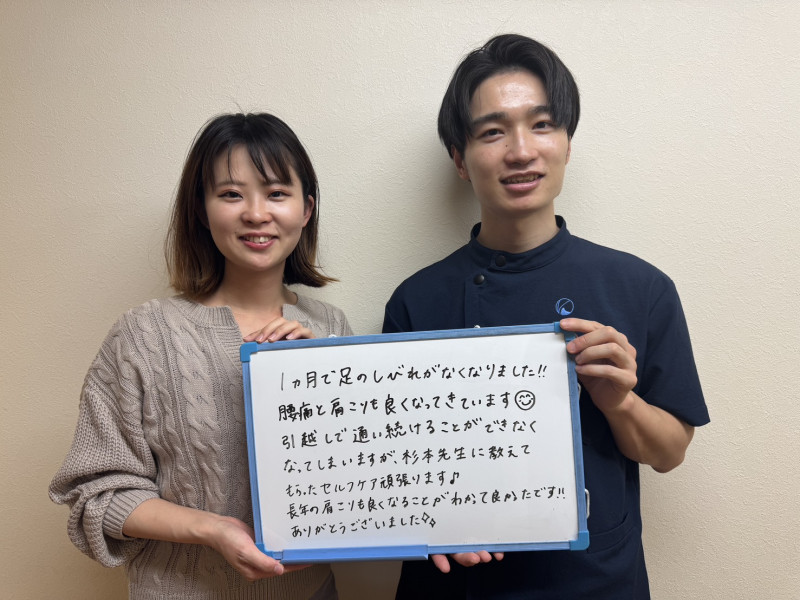 1ヵ月で足のしびれがなくなりました!!
腰痛と肩こりも良くなってきています😊
引越しで通い続けることができなく
なってしまいますが、杉本先生に教えて
もらったセルフケア頑張ります♪
長年の肩こりも良くなることがわかって良かったです!!
ありがとうございました✧✧